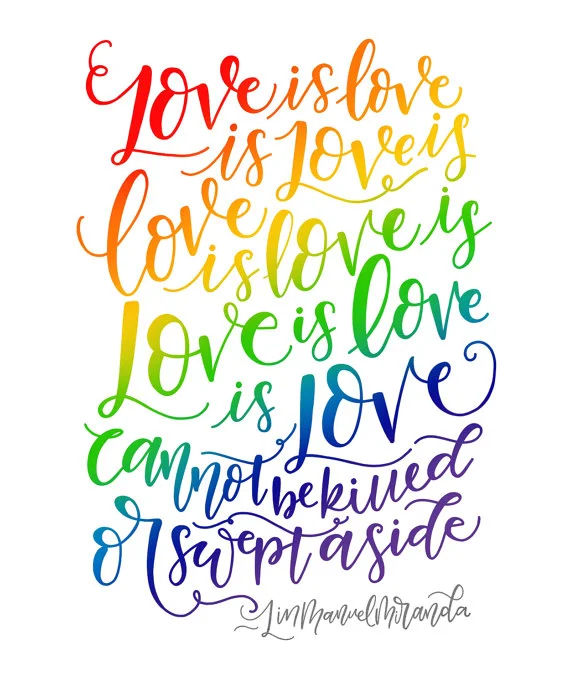 Love is love
is Love is
love
is love is
Love is love
is Love
cannot be killed
or swept aside
Lin Manuel Miranda